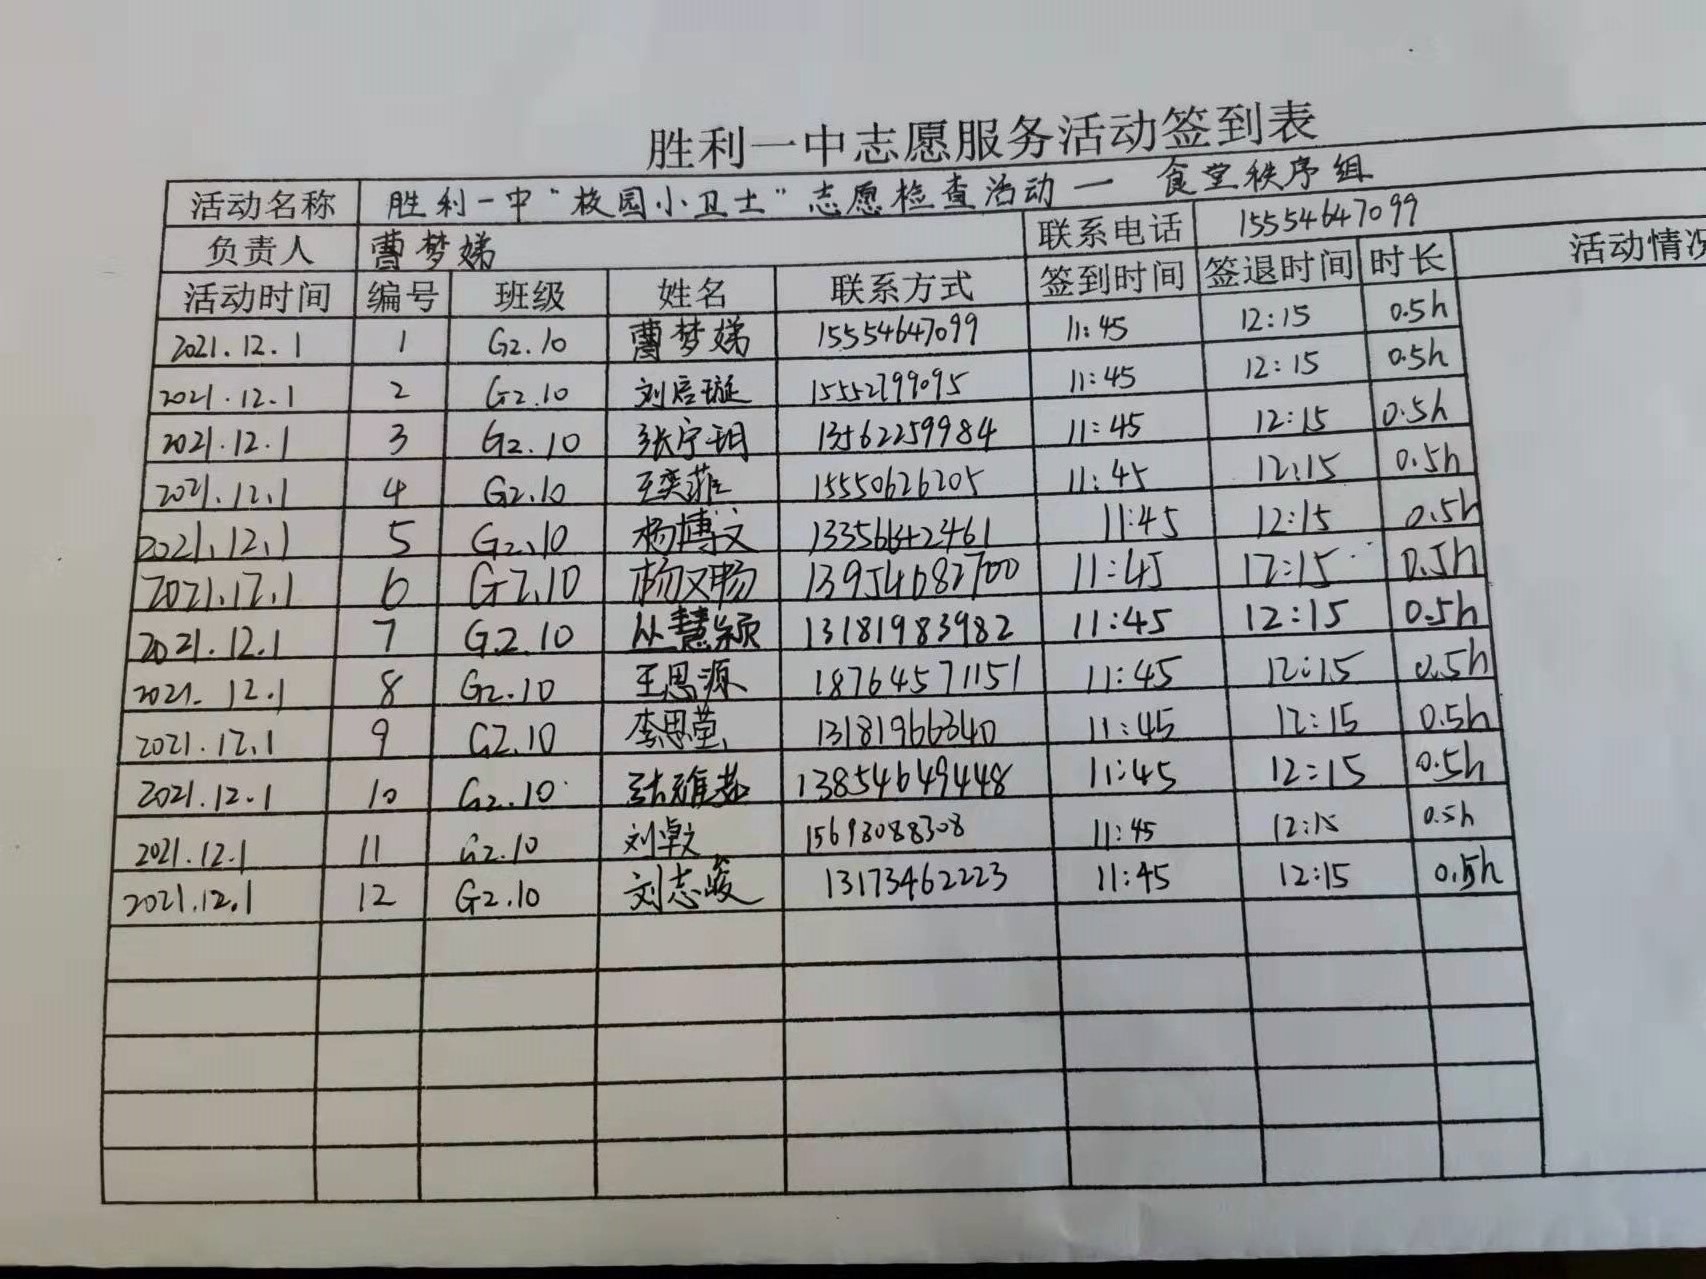 胜利一中志愿服务活动签到表
活动名称 胜利一中"校园小卫士"志愿检查活动一 食堂秩序组
负责人 曹梦娣 联系电话 15554647099
活动时间 编号 班级 姓名 联系方式 签到时间 签退时间 时长 活动情况
2021.12.1 1 G2.10 曹梦娣 15554647099 11:45 12:15 0.5h
2021.12.1 2 G2.10 15552799095 11:45 12:15 0.5h
2021.12.1 3 G2.10 张宁玥 13562259984 11:45 12:15 0.5h
2021.12.1 4 G2.10 王奕菲 15550626205 11:45 12:15 0.5h
2021.12.1 5 G2.10 杨博文 13356642461 11:45 12:15 0.5h
2021.12.1 6 G2.10 杨又畅 13954682700 11:45 12:15 0.5h
2021.12.1 7 G2.10 丛慧颖 13181983982 11:45 12:15 0.5h
2021.12.1 8 G2.10 王思源 18764571151 11:45 12:15 0.5h
2021.12.1 9 G2.10 李思莹 13181966340 11:45 12:15 0.5h
2021.12.1 10 G2.10 13854649448 11:45 12:15 0.5h
2021.12.1 11 G2.10 15693088308 11:45 12:15 0.5h
2021.12.1 12 G2.10 刘志峻 13173462223 11:45 12:15 0.5h